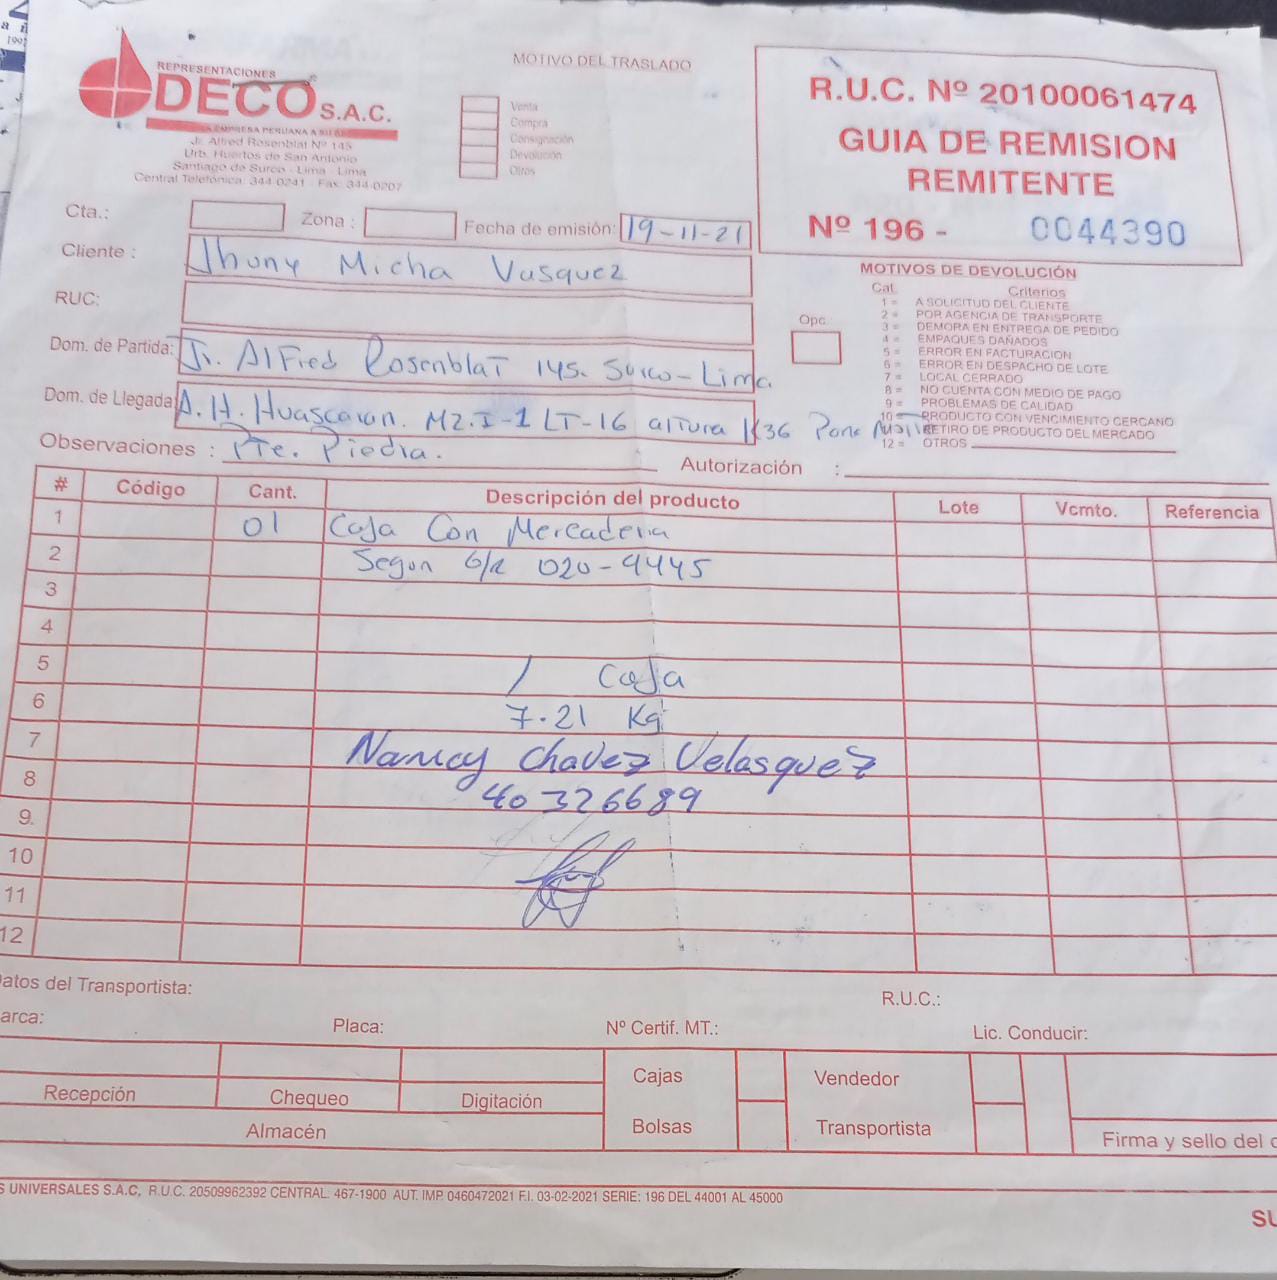 REPRESENTACIONES
DECO S.A.C.
LA EMPRESA PERUANA A SU
Jr. Alfred Rosenblat Nº 145
Urb. Huertos de San Antonio
Santiago de Surco - Lima - Lima
Central Telefónica: 344-0241 - Fax: 344-0207
MOTIVO DEL TRASLADO
Venta
Compra
Consignación
Devolución
Otros
R.U.C. Nº 20100061474
GUIA DE REMISION
REMITENTE
Nº 196 - 0044390
Cta.: Zona : Fecha de emisión: 19-11-21
Cliente : Jhony Micha Vasquez
RUC:
Dom. de Partida: Jr. Alfred Rosenblat 145. Surco-Lima
Dom. de Llegada: A.H. Huascaran. MZ.I-1 LT-16 altura K36 Pana
Observaciones : Pte. Piedra.
Autorización :
Opc.
MOTIVOS DE DEVOLUCIÓN
Cat. Criterios
1 = A SOLICITUD DEL CLIENTE
2 = POR AGENCIA DE TRANSPORTE
3 = DEMORA EN ENTREGA DE PEDIDO
4 = EMPAQUES DAÑADOS
5 = ERROR EN FACTURACION
6 = ERROR EN DESPACHO DE LOTE
7 = LOCAL CERRADO
8 = NO CUENTA CON MEDIO DE PAGO
9 = PROBLEMAS DE CALIDAD
10 = PRODUCTO CON VENCIMIENTO CERCANO
RETIRO DE PRODUCTO DEL MERCADO
12 = OTROS
# Código Cant. Descripción del producto Lote Vcmto. Referencia
1 01 Caja Con Mercaderia
2 Segun G/R 020-9445
3
4
5 1 Caja
6 7.21 Kg
7 Nancy Chavez Velasquez
8 40326689
9
10
11
12
Datos del Transportista: R.U.C.:
arca: Placa: Nº Certif. MT.: Lic. Conducir:
Recepción Chequeo Digitación
Almacén
Cajas
Bolsas
Vendedor
Transportista
Firma y sello del c
S UNIVERSALES S.A.C, R.U.C. 20509962392 CENTRAL. 467-1900 AUT. IMP. 0460472021 F.I. 03-02-2021 SERIE: 196 DEL 44001 AL 45000
SU